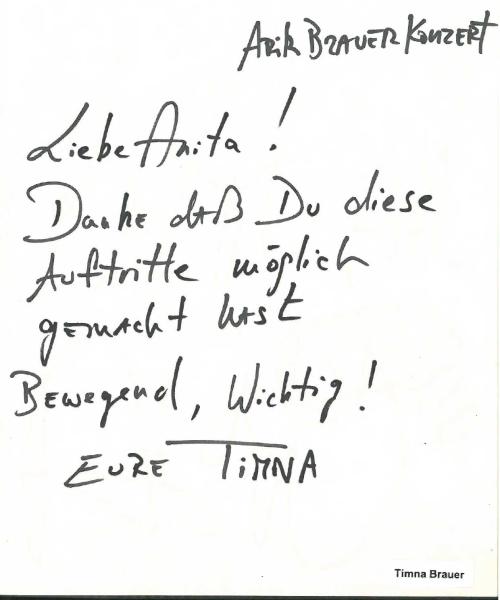 Arik Brauer Konzert
Liebe Anita!
Danke daß Du diese
Auftritte möglich
gemacht hast
Bewegend, Wichtig!
Eure Timna
Timna Brauer